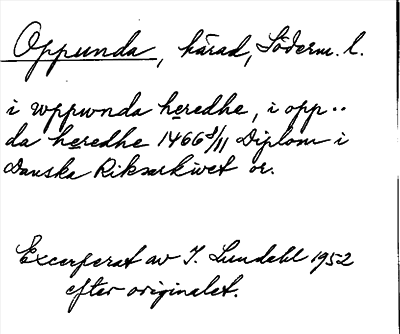 Oppunda, härad, Söderm. l.
i wppwnda heredhe, i opp..
da heredhe 1466 8/11 Diplom i
Danska Riksarkivet or.
Excerperat av I. Lundahl 1952
efter originalet.